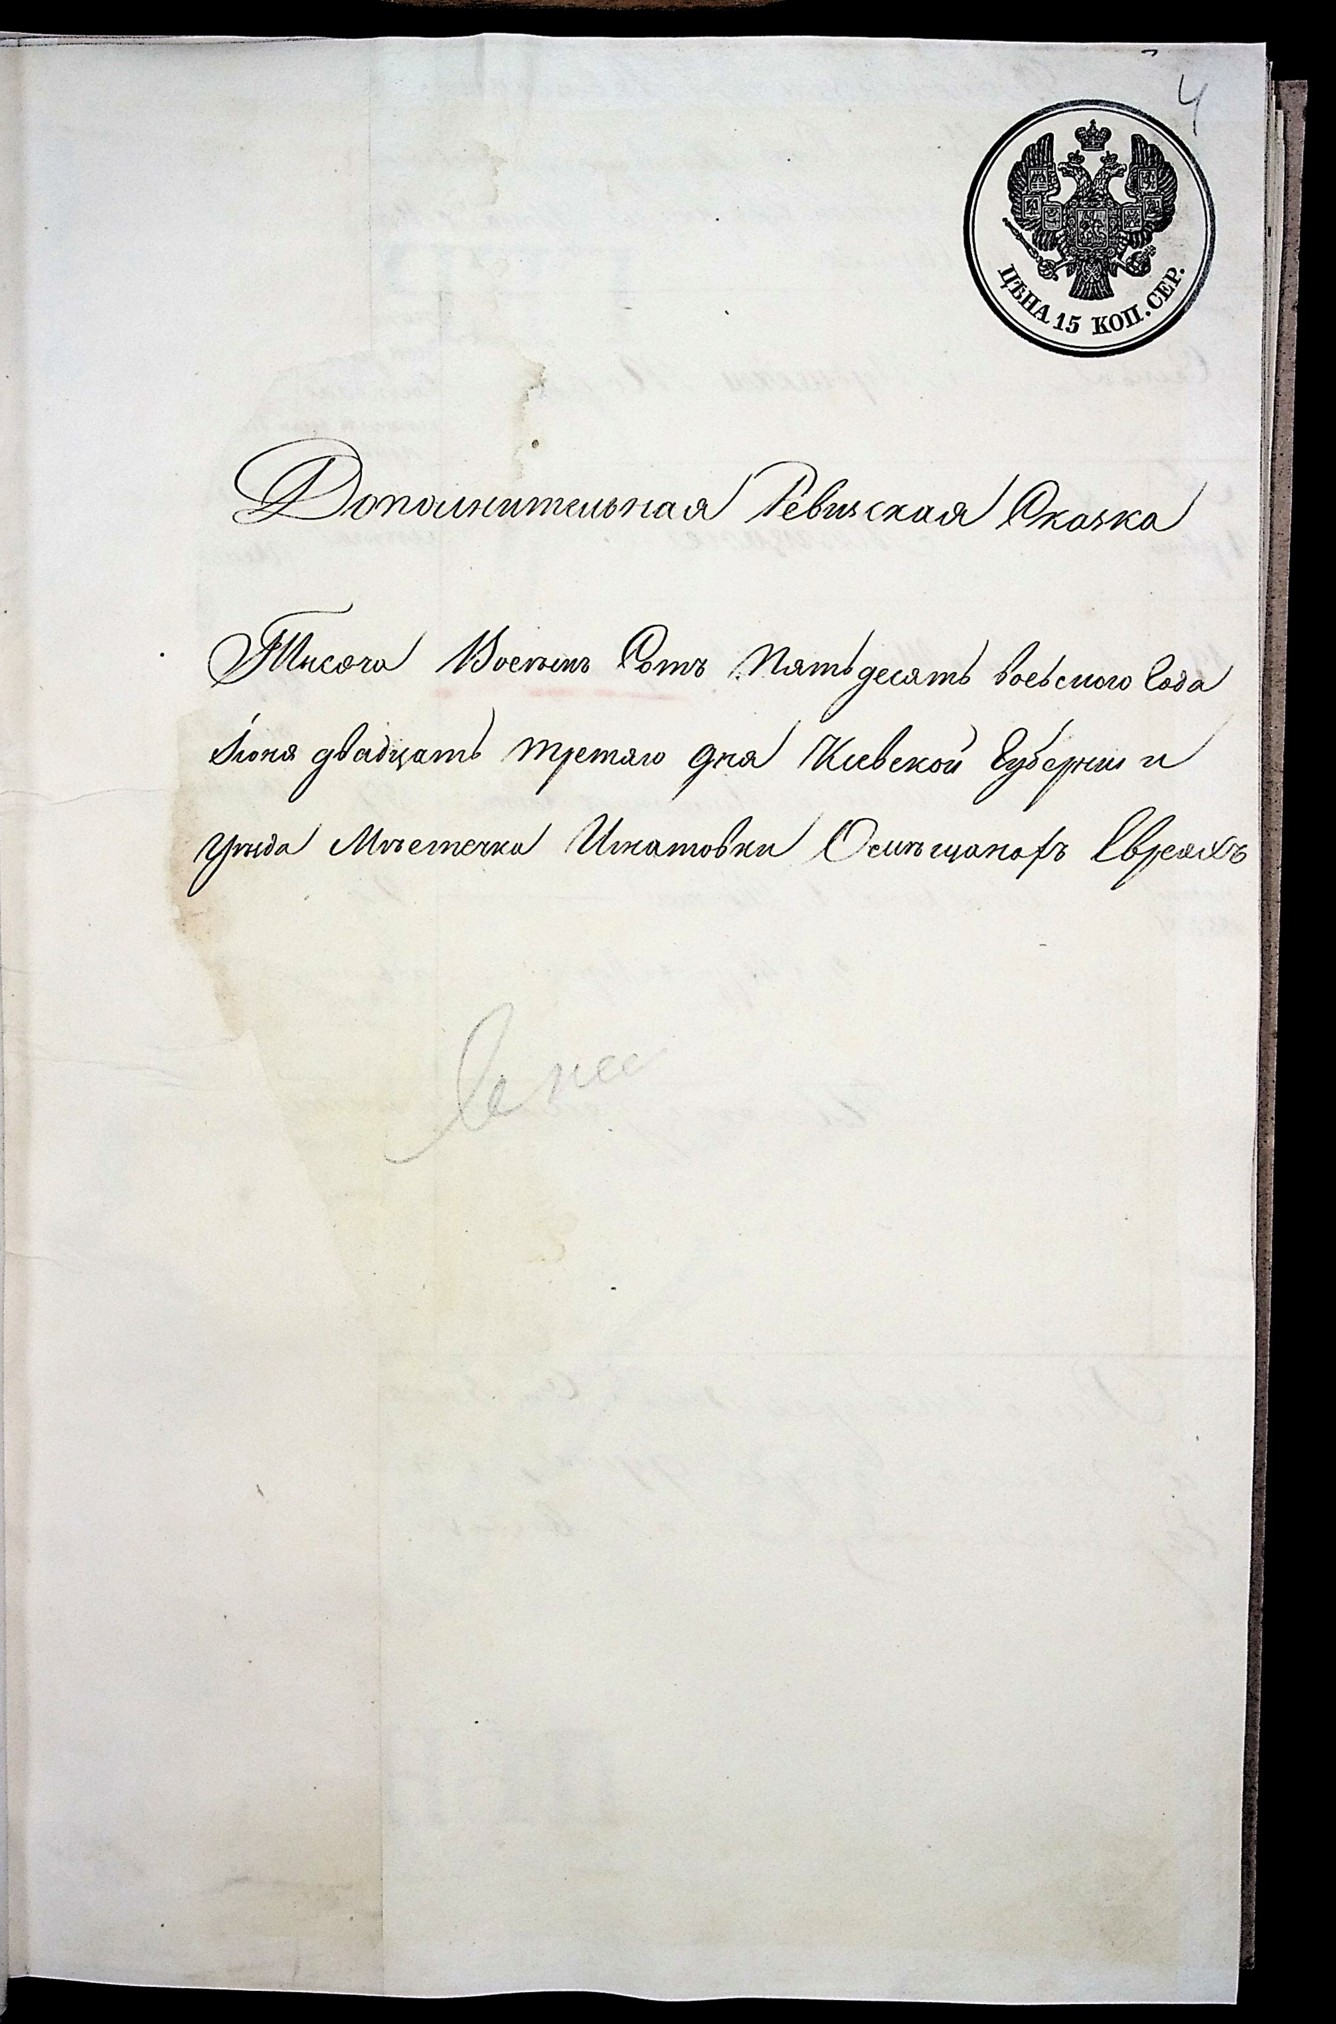 4
ЦѢНА 15 КОП. СЕР.
Дополнительная Ревизская Сказка
Тисяча Восемь Сотъ Пятьдесять восьмого Года
Іюня двадцать третяго дня Кіевской Губерніи и
уезда Мѣстечка Игнатовки О мѣщанахъ Евреяхъ